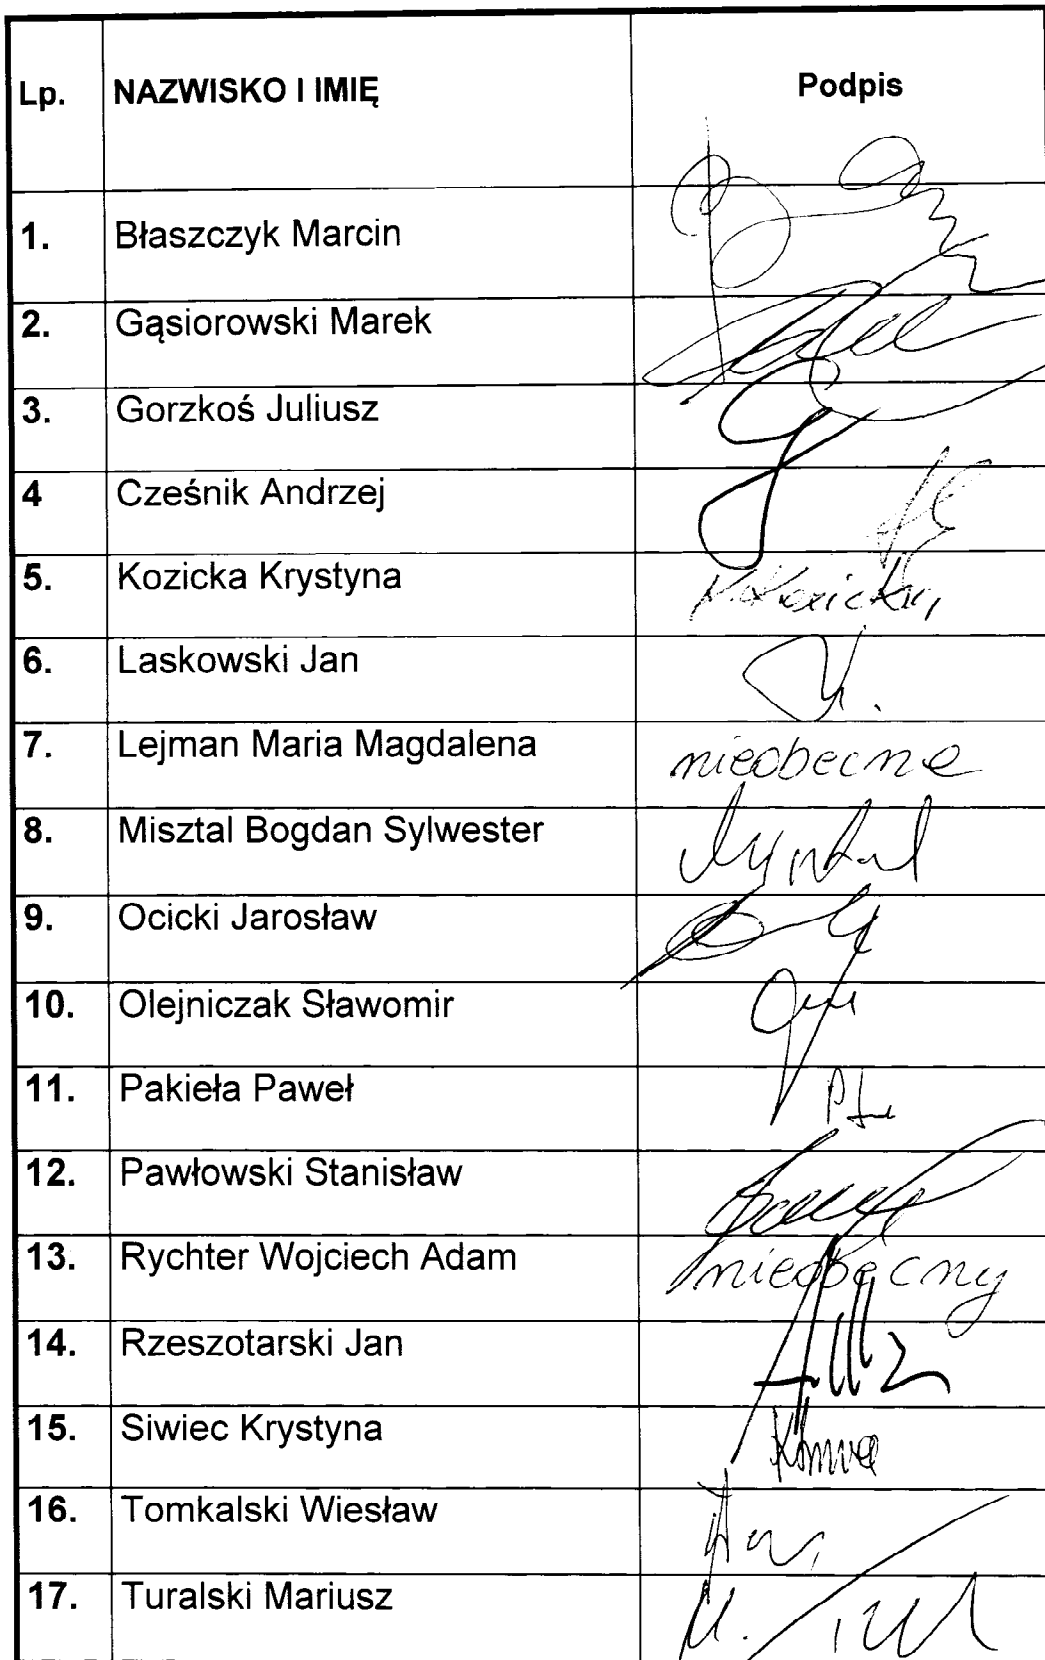 Lp. NAZWISKO I IMIĘ Podpis
1. Błaszczyk Marcin
2. Gąsiorowski Marek
3. Gorzkoś Juliusz
4 Cześnik Andrzej
5. Kozicka Krystyna K.Kozicka
6. Laskowski Jan
7. Lejman Maria Magdalena nieobecna
8. Misztal Bogdan Sylwester
9. Ocicki Jarosław
10. Olejniczak Sławomir
11. Pakieła Paweł
12. Pawłowski Stanisław
13. Rychter Wojciech Adam nieobecny
14. Rzeszotarski Jan
15. Siwiec Krystyna
16. Tomkalski Wiesław
17. Turalski Mariusz